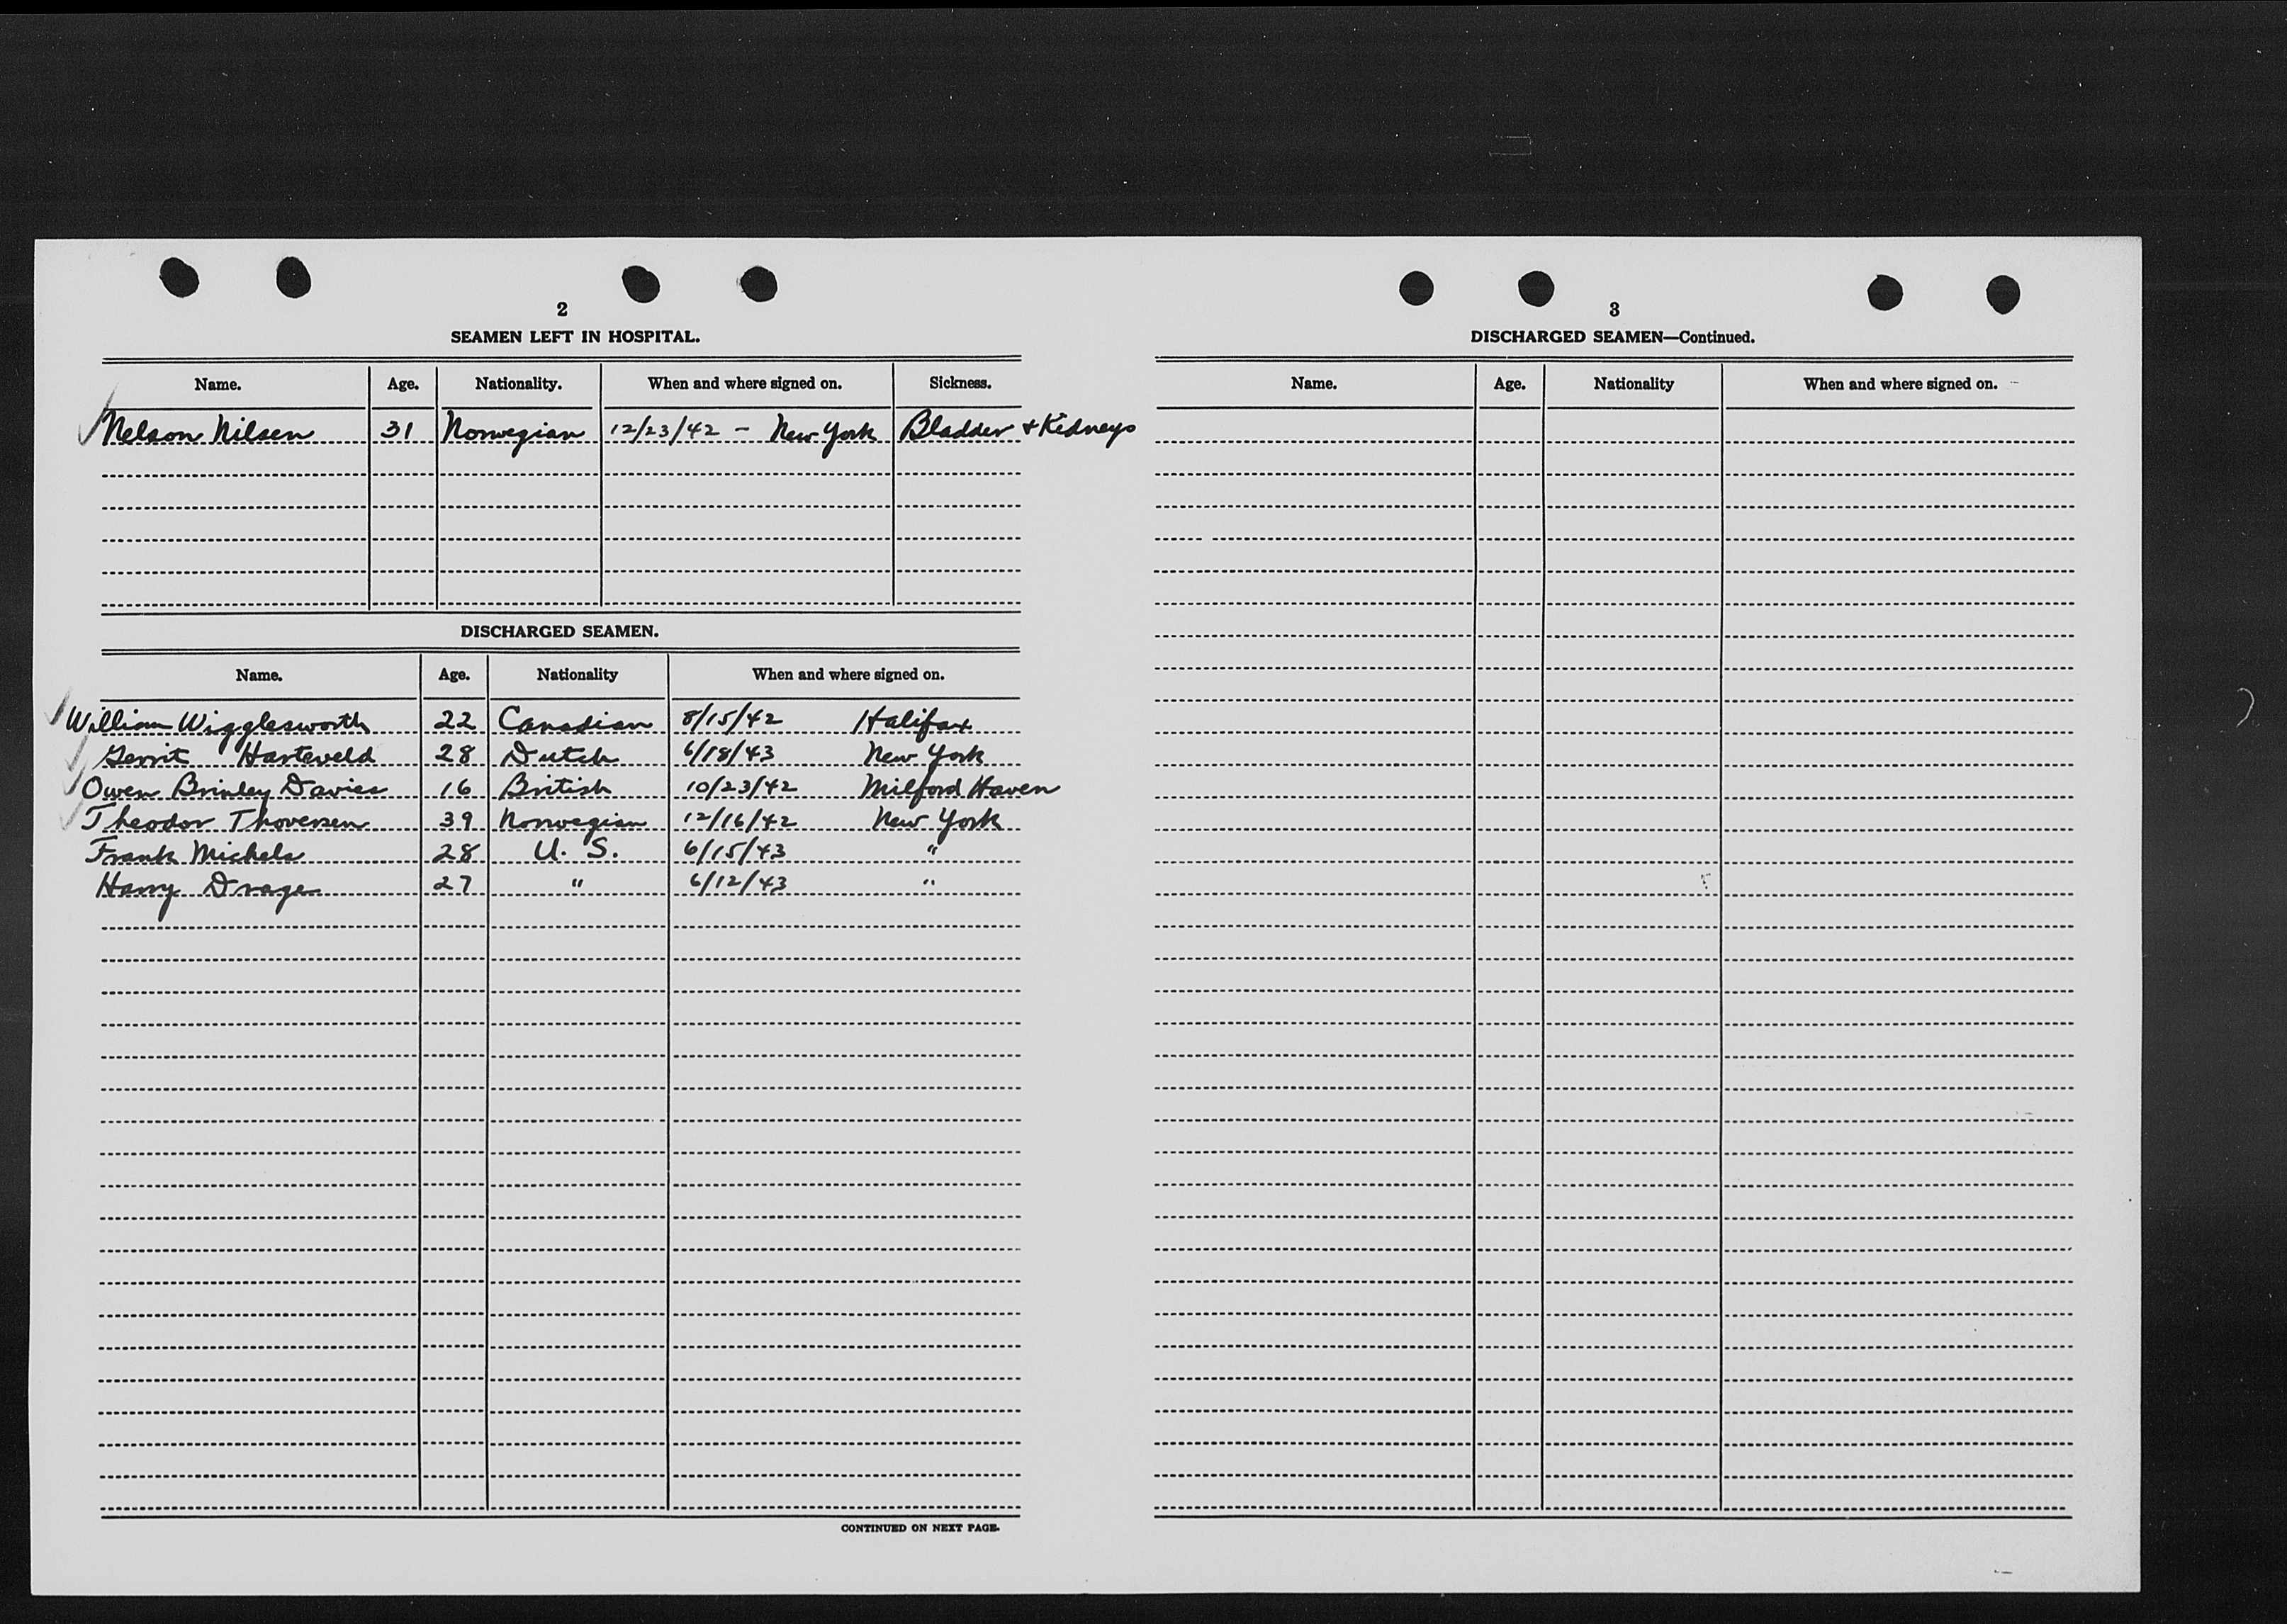 2
SEAMEN LEFT IN HOSPITAL.
Name. Age. Nationality. When and where signed on. Sickness.
Nelson Nilsen 31 Norwegian 12/23/42 – New York Bladder + Kidneys
DISCHARGED SEAMEN.
Name. Age. Nationality When and where signed on.
William Wigglesworth 22 Canadian 8/15/42 Halifax
Gerrit Harteveld 28 Dutch 6/18/43 New York
Owen Brinley Davies 16 British 10/23/42 Milford Haven
Theodor Thoversen 39 Norwegian 12/16/42 New York
Frank Michels 28 U. S. 6/15/43 "
Harry Drage 27 " 6/12/43 "
CONTINUED ON NEXT PAGE.
3
DISCHARGED SEAMEN—Continued.
Name. Age. Nationality When and where signed on.